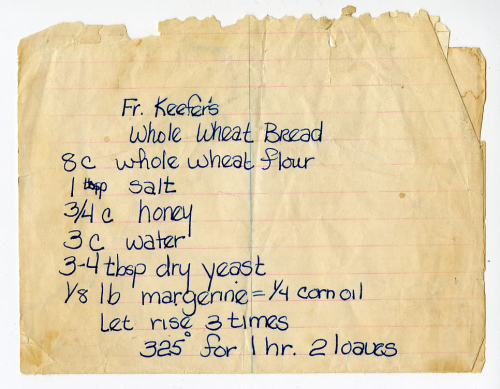 Fr. Keefer's
Whole Wheat Bread
8 c whole wheat flour
1 tbsp salt
3/4 c honey
3 c water
3-4 tbsp dry yeast
1/8 lb margerine = 1/4 corn oil
Let rise 3 times
325° for 1 hr. 2 loaves